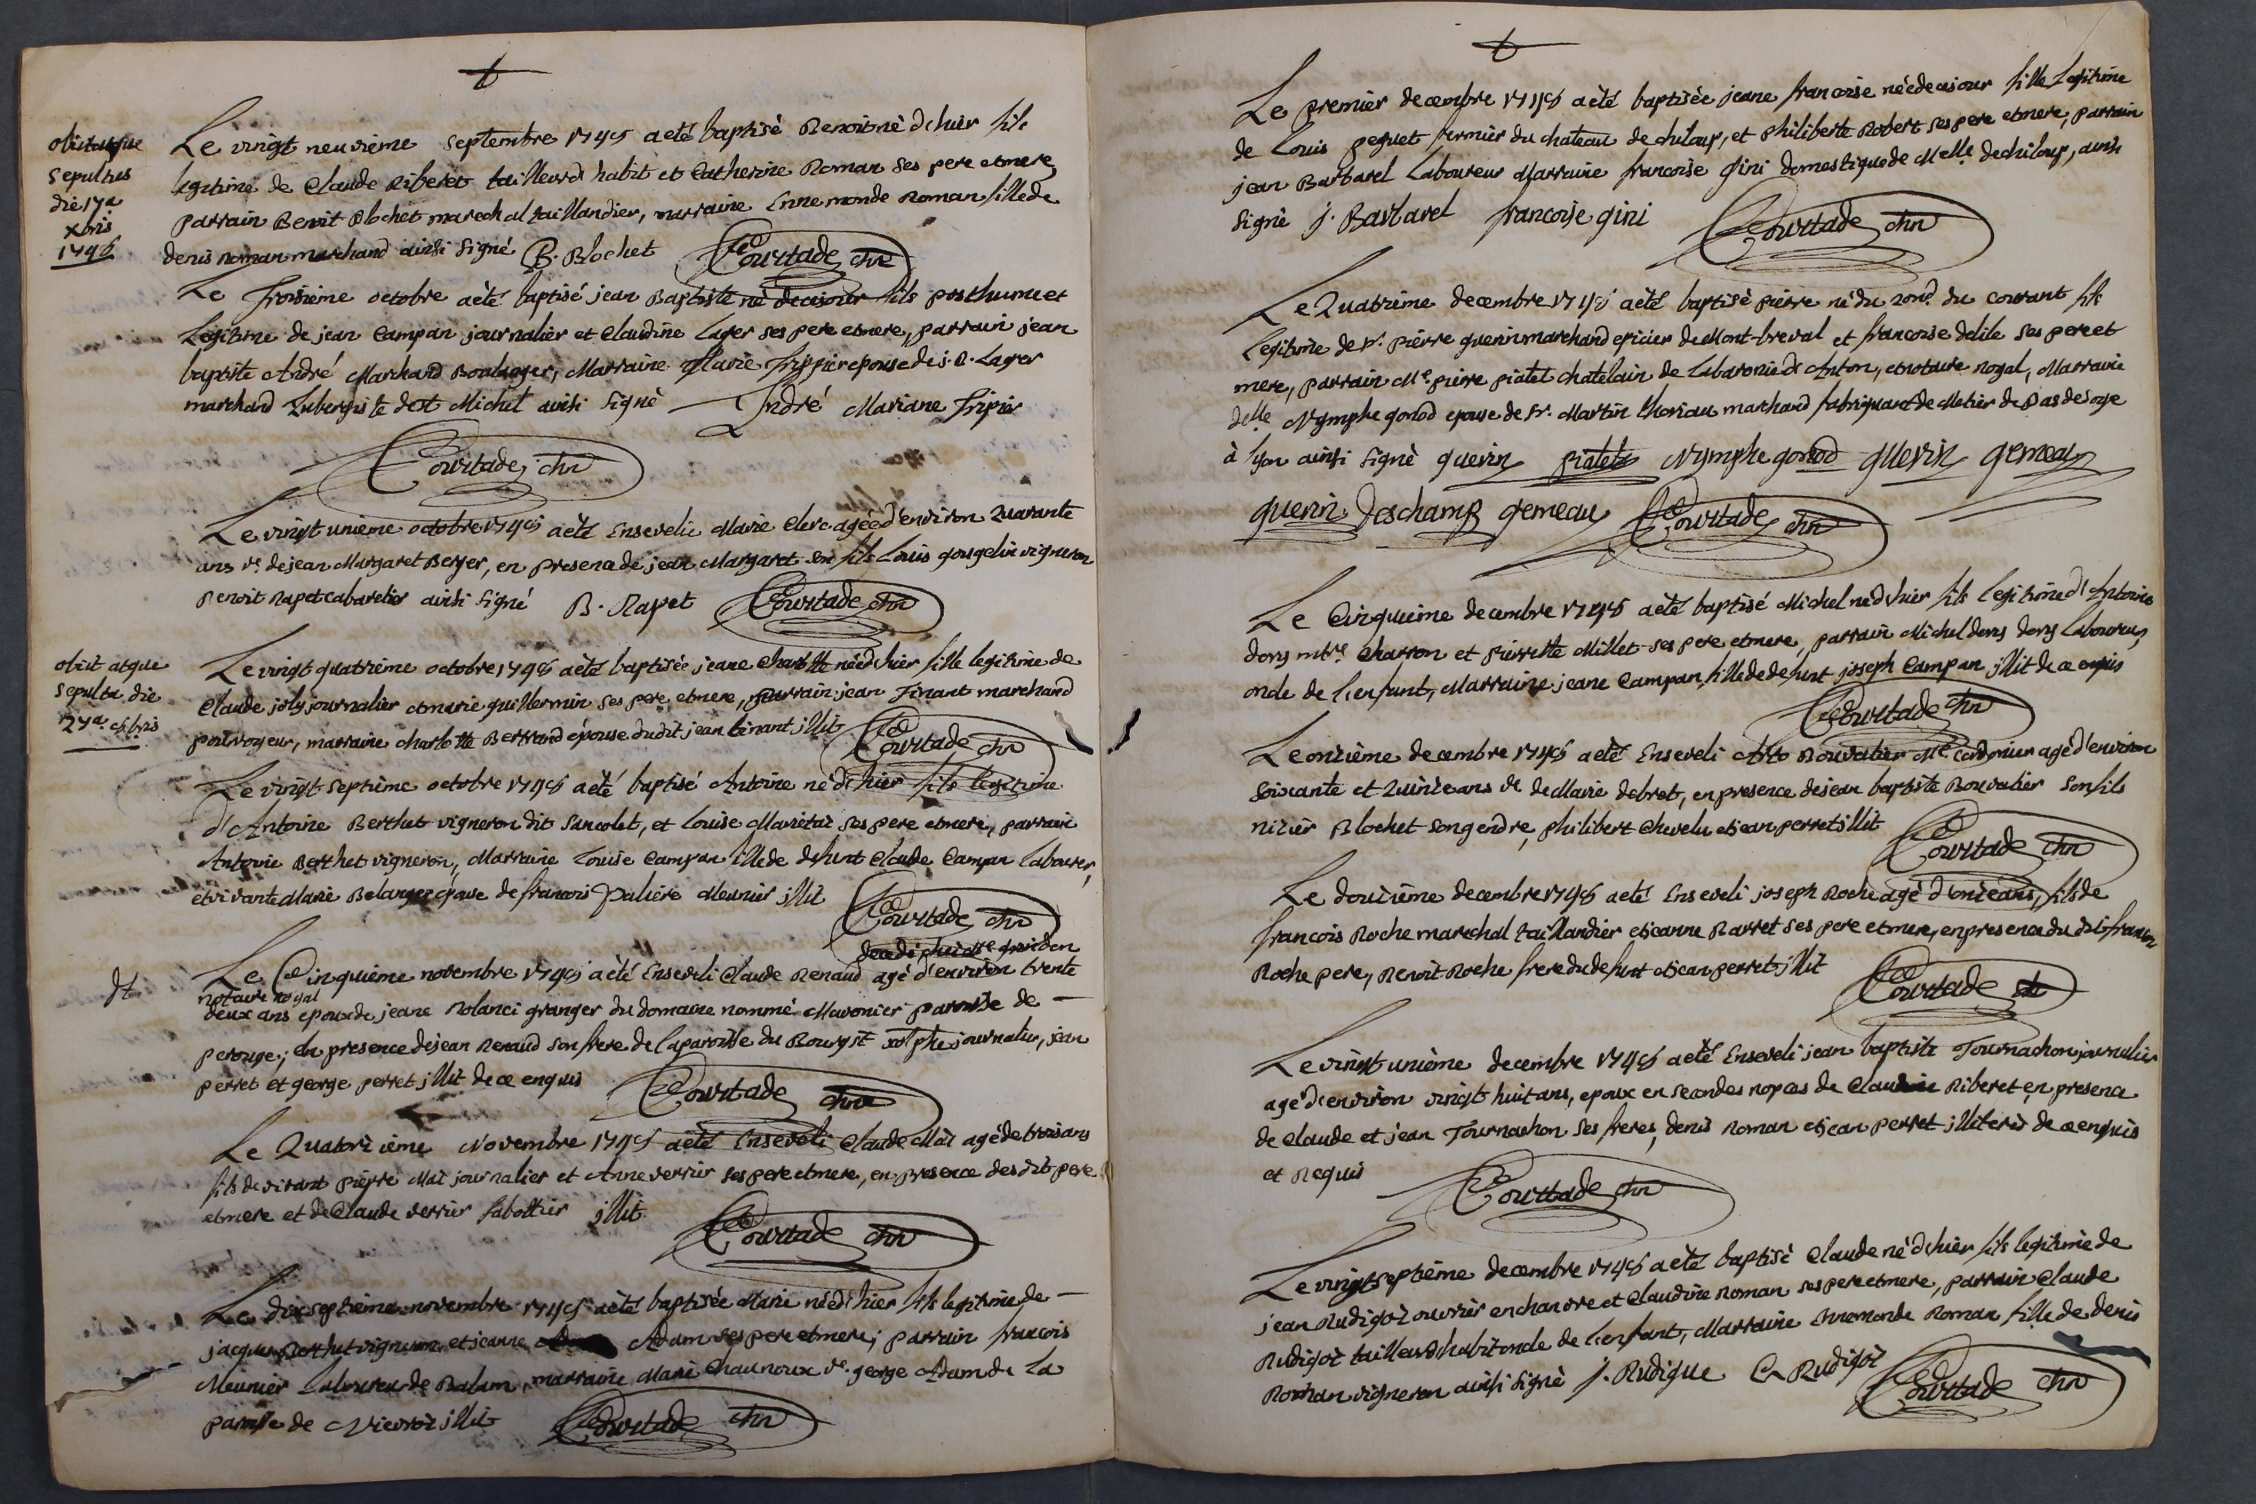 t
obiit atque
sepultus
die 17a
xbris
1745
Le vingt neuvieme septembre 1745 a eté baptisé Benoit né d'hier fils
legitime de Claude Riberet tailleur d'habit et Catherine Roman ses pere et mere,
parrain Benoit Blochet marechal taillandier, marraine Ennemonde Roman fille de
denis roman marchand ainsi signé B. Blochet Courtade chn
Le troisième octobre a èté baptisé jean Baptiste né de ce jour fils posthume et
Legitime de jean Campan journalier et Claudine Lager ses pere et mere, parrain jean
baptiste André Marchand Boulanger, Marraine Marie Trippier epouse de j. B. Lager
marchand Aubergiste de st Michel ainsi signè André Mariane Tripier
Courtade chn
Le vingt unieme octobre 1745 a èté Enseveli Marie Clerc agée d'environ Quarante
ans ve. de jean Margaret Berger, en presence de jean Margaret son fils Louis gougelin vigneron
Benoit Rapet cabaretier ainsi signé B. Rapet Courtade chn
obiit atque
sepulta die
27a. 8bris
Le vingt quatrième octobre 1745 a èté baptisée jeane Charlotte née d'hier fille legitime de
Claude joly journalier et marie guillermin ses pere et mere, parrain jean Finant marchand
pourvoyeur, marraine charlotte Bertrand épouse dudit jean finant jllit Courtade chn
Le vingt septième octobre 1745 a èté baptisé Antoine né d'hier fils legitime
d'Antoine Berthet vigneron dit Sancolet, et Louise Mariétai ses pere et mere, parrain
Antoine Berthet vigneron, Marraine Louise Campan fille de defunt Claude Campan Laboureur,
et vivante Marie Belanger épouse de francois Paliere Meunier jllit Courtade chn
dt
Le Cinquième novembre 1745 a èté Enseveli Claude Renaud agé d'environ trente
notaire royal
deux ans epoux de jeane Rolanci granger du domaine nommé Mavonier paroisse de
perouge; En presence de jean Renaud son frere de la paroisse du Bourg st journalier, jean
perret et george perret jllit de ce enquis Courtade chn
Le Quatorzième Novembre 1745 a èté Enseveli Claude Mai agé de trois ans
fils de vivant pierre Mai journalier et Anne verrier ses pere et mere, en presence desdits pere
et mere et de Claude verrier sabottier jllit Courtade chn
Le dix septième novembre 1745 a èté baptisée Marie née d'hier fils legitime de
jacques Berthet vigneron et jeanne Adam ses pere et mere; parrain francois
Meunier Laboureur de Balam, marraine Marie Chaunoux ve. george Adam de La
paroisse de Nievroz jllit Courtade chn
t
Le premier decembre 1745 a èté baptisée jeane francoise née de ce jour fille Legitime
de Louis peguet fermier du chateau de chiloup, et philiberte Robert ses pere et mere, parrain
jean Barbarel Laboureur Marraine francoise Gini domestique de Melle de chiloup, ainsi
signè j. Barbarel francoise gini Courtade chn
Le Quatrième decembre 1745 a èté baptisé pierre né du 2ond. du courant fils
Legitime de sr. pierre guerin marchand epicier de Mont-breval et francoise delile ses pere et
mere, parrain Me. pierre piatet chatelain de La baronie d'Anton, et notaire royal, Marraine
delle Nymphe gonod epouse de sr. Martin thoriau marchand fabriquant de Metier de Bas de soye
à lyon ainsi signè guerin piatet Nymphe gonod guerin gemeau
guerin Deschamp gemeau Courtade chn
Le Cinquieme decembre 1745 a èté baptisé Michel né d'hier fils legitime d'Antoine
dory mtre. Charron et pierrette Millet ses pere et mere, parrain Michel dory Laboureur,
oncle de l'enfant, Marraine jeane Campan fille de defunt joseph Campan jllit de ce enquis
Courtade chn
Le onzième decembre 1745 a èté Enseveli Bouvatier Me. Cordonier agé d'environ
soixante et Quinze ans ve. de Marie debret, en presence de jean baptiste Bouvatier son fils
nizier Blochet son gendre, philibert Chevelu et jean perret jllit Courtade chn
Le douzième decembre 1745 a eté Enseveli joseph Roche agé d'onze ans, fils de
francois Roche marechal taillandier et jeanne Barret ses pere et mere, en presence du dit francois
Roche pere, Benoit Roche frere du defunt et jean perret jllit Courtade chn
Le vingt unième decembre 1745 a èté Enseveli jean baptiste Tournachon journalier
agé d'environ vingt huit ans, epoux en secondes nopces de Claudine Riberet, en presence
de Claude et jean Tournachon ses freres, denis Roman et jean perret jlliterés de ce enquis
et Requis Courtade chn
Le vingt septième decembre 1745 a èté baptisé Claude né d'hier fils legitime de
jean Rudigoz ouvrier en chanvre et Claudine Roman ses pere et mere, parrain Claude
Rudigoz tailleur d'habit oncle de l'enfant, Marraine Ennemonde Roman fille de denis
Roman vigneron ainsi signè J. Rudigue C. Rudigoz Courtade chn